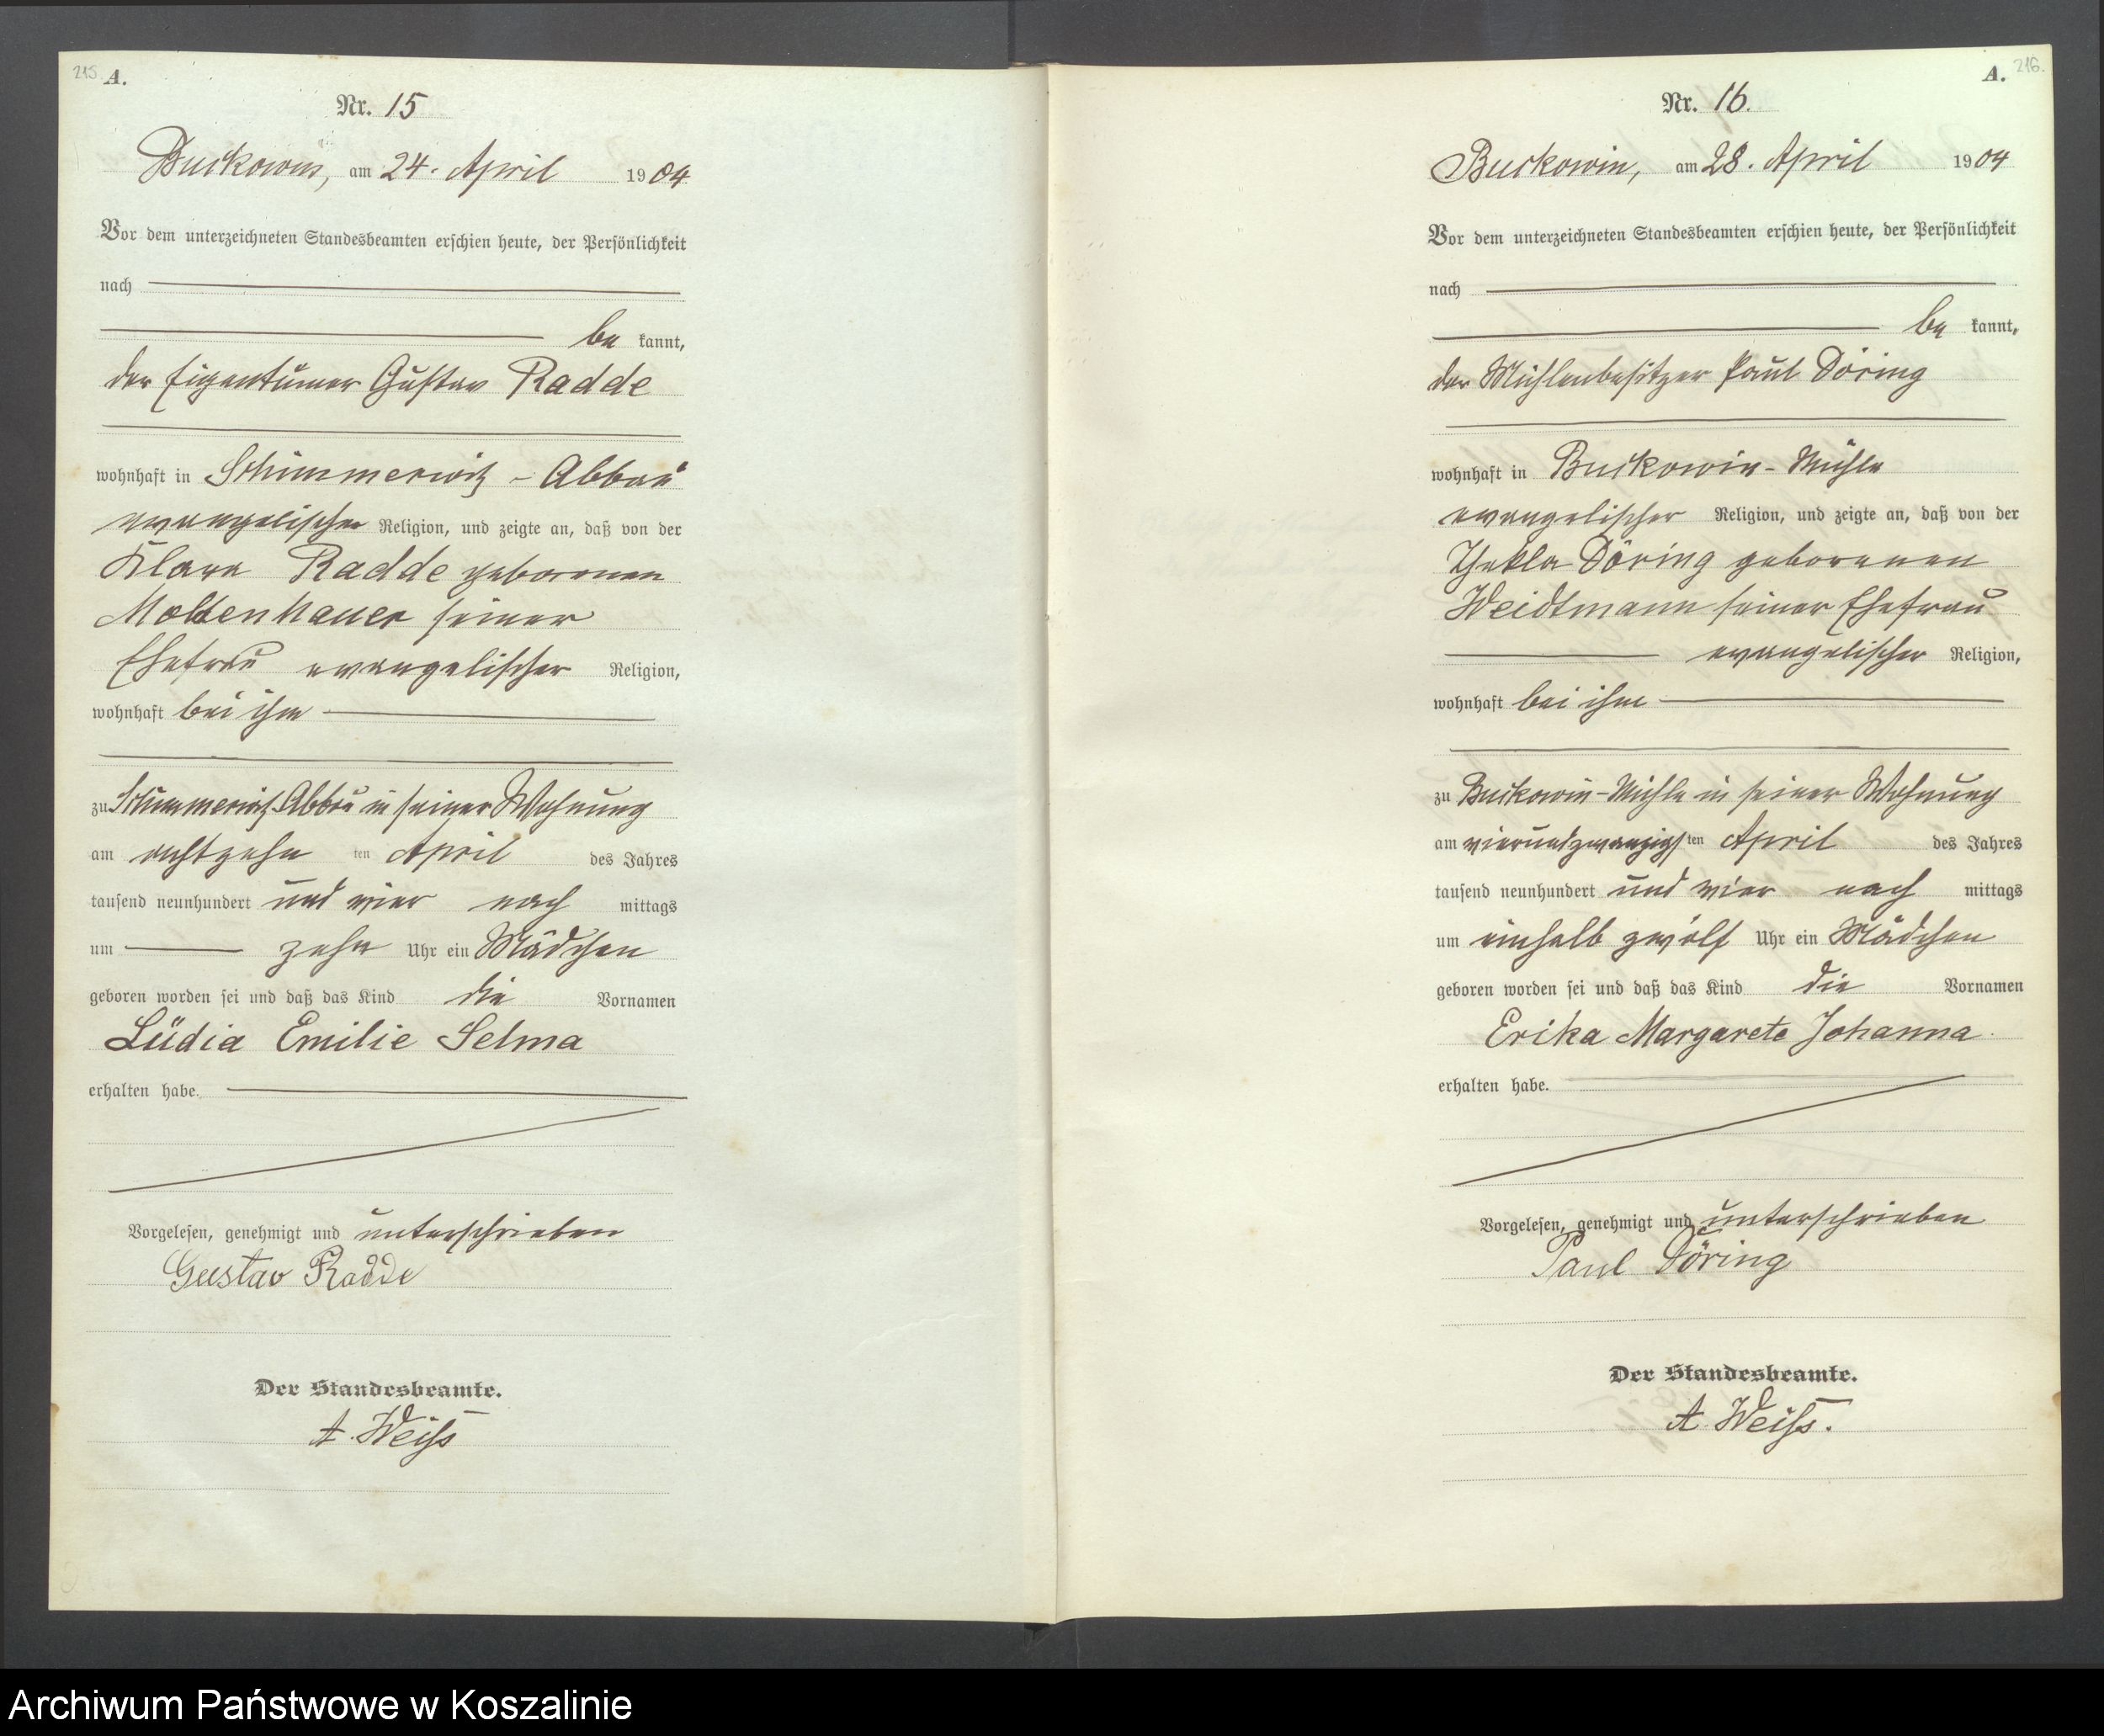 215 A.
Nr. 15
Buckowin, am 24. April 1904
Vor dem unterzeichneten Standesbeamten erschien heute, der Persönlichkeit
nach
be kannt,
der Eigentümer Gustav Radde
wohnhaft in Schimmerwitz - Abbau
evangelischer Religion, und zeigte an, daß von der
Klara Radde geborenen
Moldenhauer seiner
Ehefrau evangelischer Religion,
wohnhaft bei ihm
zu Schimmerwitz Abbau in seiner Wohnung
am achtzehn ten April des Jahres
tausend neunhundert und vier nach mittags
um zehn Uhr ein Mädchen
geboren worden sei und daß das Kind die Vornamen
Lüdia Emilie Selma
erhalten habe.
Vorgelesen, genehmigt und unterschrieben
Gustav Radde
Der Standesbeamte.
A. Weiß
A. 216.
Nr. 16.
Buckowin, am 28. April 1904
Vor dem unterzeichneten Standesbeamten erschien heute, der Persönlichkeit
nach
be kannt,
der Mühlenbesitzer Paul Döring
wohnhaft in Buckowin - Mühle
evangelischer Religion, und zeigte an, daß von der
Thekla Döring geborenen
Weidtmann seiner Ehefrau
evangelischer Religion,
wohnhaft bei ihm
zu Buckowin - Mühle in seiner Wohnung
am vierundzwanzigs ten April des Jahres
tausend neunhundert und vier nach mittags
um einhalb zwölf Uhr ein Mädchen
geboren worden sei und daß das Kind die Vornamen
Erika Margarete Johanna
erhalten habe.
Vorgelesen, genehmigt und unterschrieben
Paul Döring
Der Standesbeamte.
A Weiß.
Archiwum Państwowe w Koszalinie